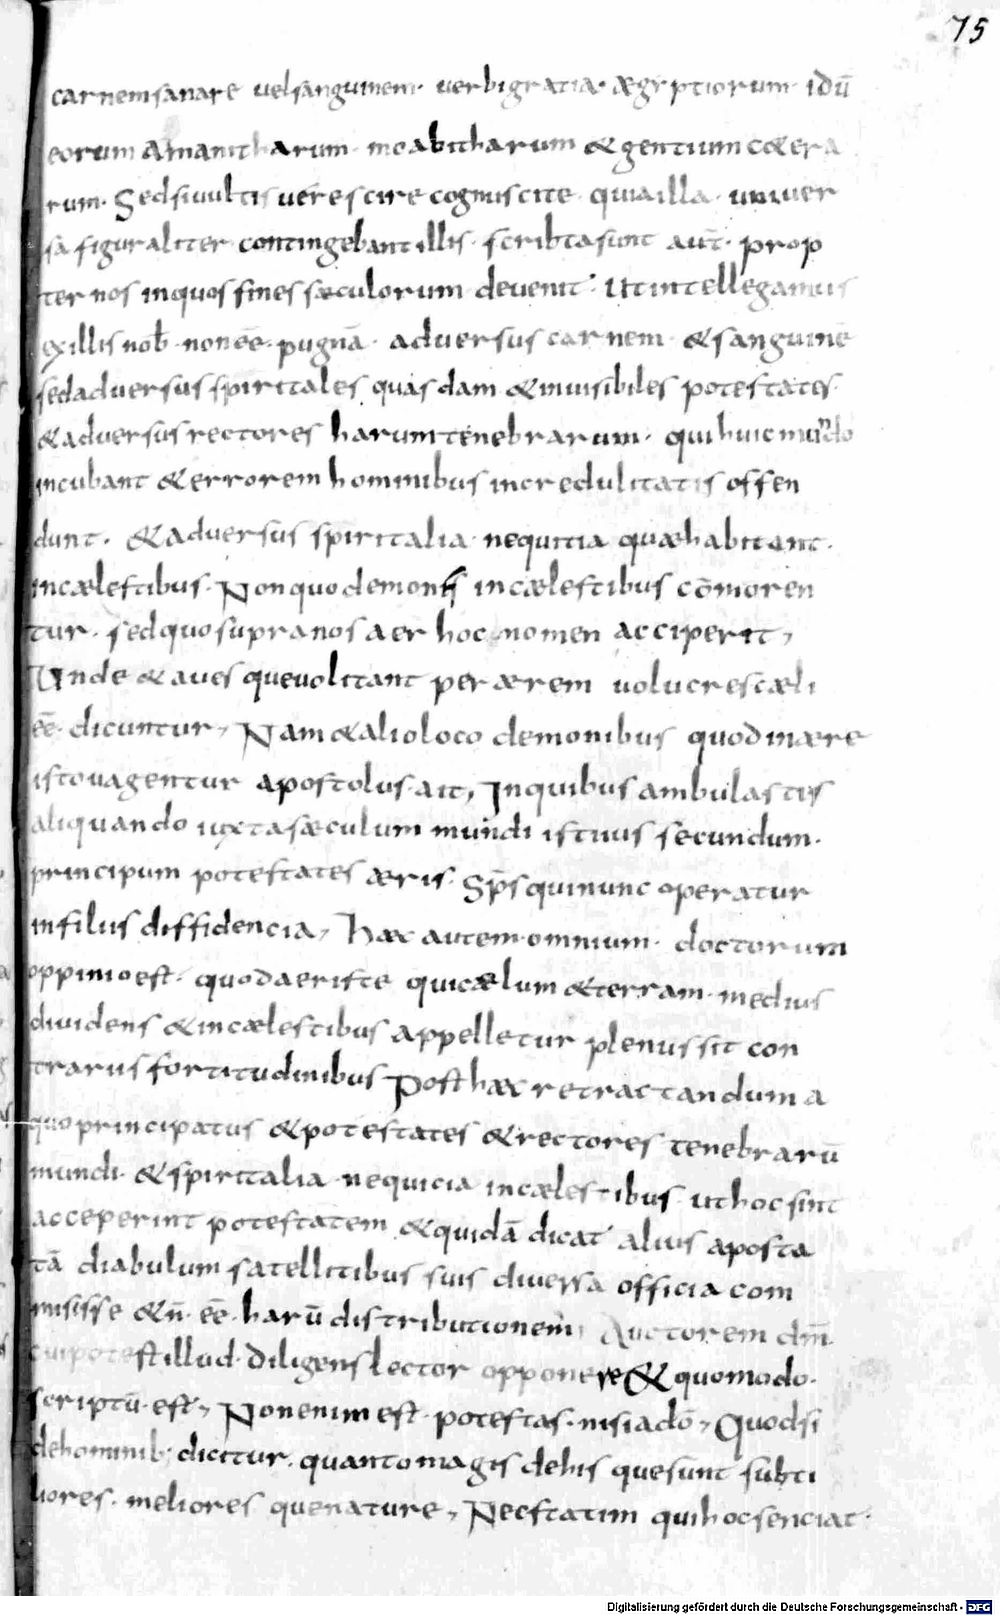 75
carnem sanare vel sanguinem· verbi gratia· ægyptiorum· idū
eorum Amanitharum· moabitharum & gentium c&era
rum· Sed si vultis vere scire cognuscite· quia illa· univer
sa figuraliter contingebant illis· scribta sunt aut̄· prop
ter nos in quos fines sæculorum devenit· Ut intellegamus
ex illis nob̄· non eē· pugnā· adversus carnem· & sanguinē
sed adversus spiritales quasdam & invisibiles potestates·
& adversus rectores harum tenebrarum· qui huic mundo
incubant & errorem hominibus incredulitatis offen
dunt· & adversus spiritalia nequitia quæ habitant·
in cælestibus· Non quo demones in cælestibus cōmoren
tur· sed quo supra nos aer hoc nomen acciperit,
Unde & aves que volitant per ærem volucres cæli
eē· dicuntur, Nam & alio loco demonibus quod in ære
isto vagentur apostolus· ait, In quibus ambulastis
aliquando iuxta sæculum mundi istius secundum·
principum potestates æris· Sp̄s qui nunc operatur
in filius diffidencia, Hæc autem· omnium· doctorum
oppinio est· quod aer iste qui cælum & terram· medius
dividens & in cælestibus appelletur plenus sit con
trariis fortitudinibus Post hæc retractandum a
quo principatus & potestates & rectores tenebrarū
mundi· & spiritalia nequicia in cælestibus· ut hoc sint
acceperint potestatem & quidā dicat alius aposta
tā diabulum satellitibus suis diversa officia com
misisse & n̄· eē· harū distributionem, Auctorem dm̄·
cui potest illud· diligens lector opponere & quomodo·
scriptū· est, Non enim est· potestas· nisi a dō, Quod si
de hominib; dicitur· quanto magis de his que sunt subti
liores· meliores que nature, Nec statim qui hoc senciat·
Digitalisierung gefördert durch die Deutsche Forschungsgemeinschaft - DFG